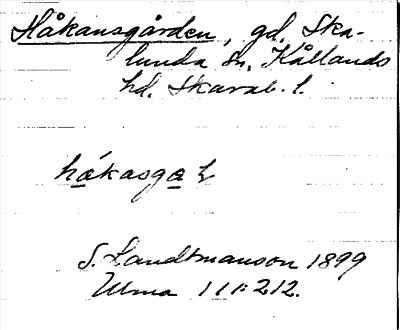 Håkansgården, gd. Ska-
lunda sn. Kållands
hd. Skarab. l.
hákasga L
S. Landtmanson 1899
Ulma 111:212.